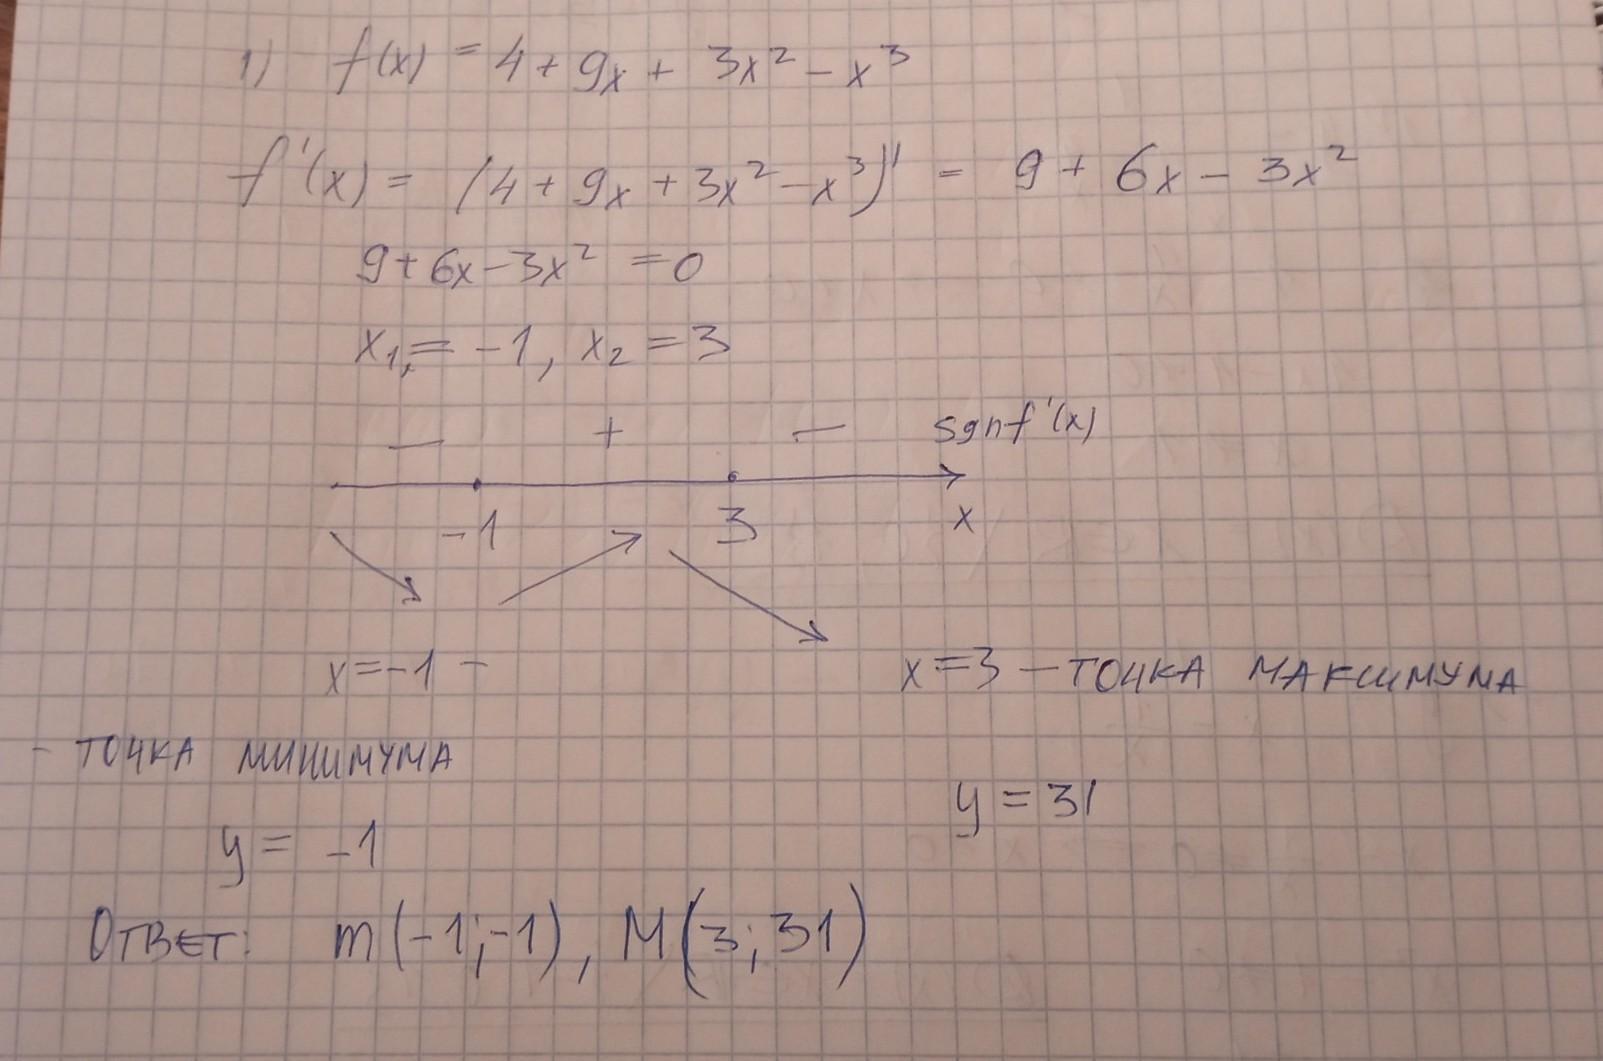 1) f(x) = 4 + 9x + 3x² - x³
f'(x) = (4 + 9x + 3x² - x³)' = 9 + 6x - 3x²
9 + 6x - 3x² = 0
x₁,= -1, x₂ = 3
— + — sgnf'(x)
-1 3 x
x = -1 - x = 3 — точка максимума
- точка минимума
y = 31
y = -1
Ответ: m(-1;-1), M(3; 31)